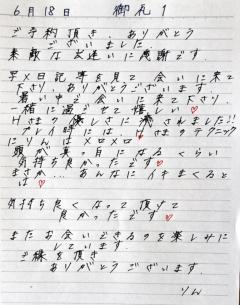 6月18日 御礼1
ご予約頂き、ありがとう
ございました。
素敵な出逢いに感謝です。
写メ日記等を見て会いに来て
下さり、ありがとうございます。
暑い中で会いに来て下さり、
一緒に過ごせて嬉しい♡
Hさまの優しさに癒されました!!
プレイ時には、Hさまのテクニック
にりんはメロメロ
頭が真っ白になるくらい
気持ち良かったです♡
まさか…あんなにイキまくると
は♡
気持ち良くなって頂けて
良かったです♡
またお会いできるのを楽しみに
しています。
ご縁を頂き
ありがとうございます。
りん